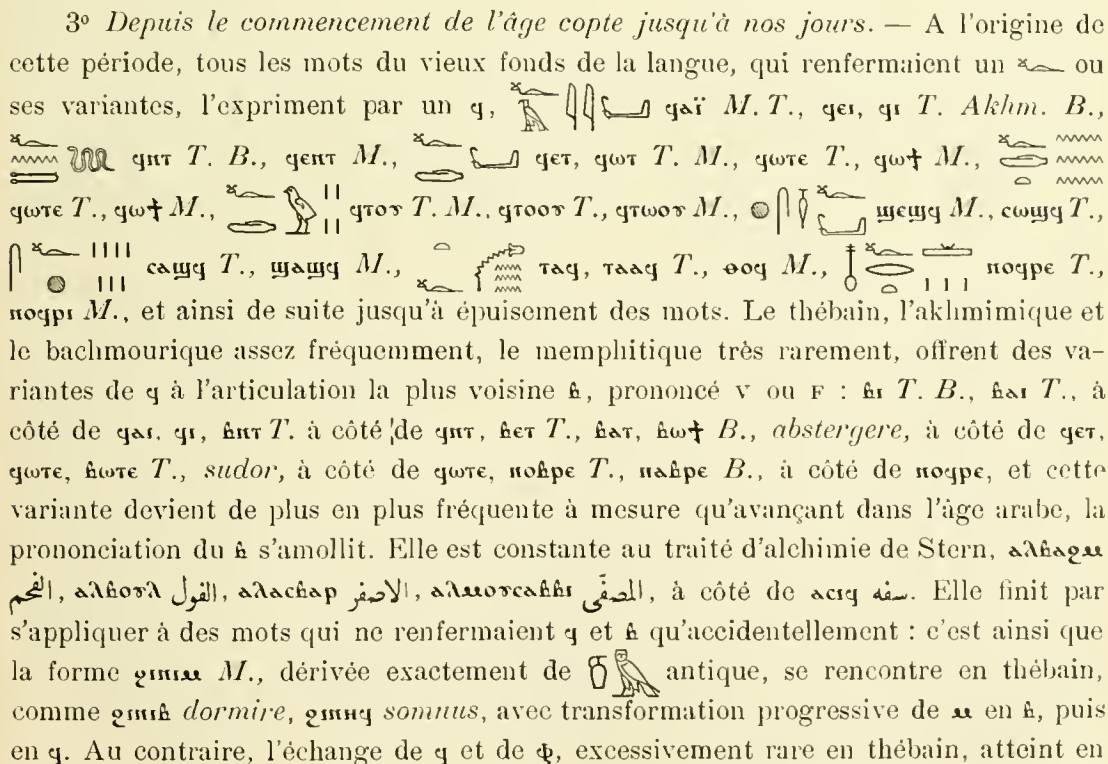 3º Depuis le commencement de l'âge copte jusqu'à nos jours. — A l'origine de
cette période, tous les mots du vieux fonds de la langue, qui renfermaient un 𓆑 ou
ses variantes, l'expriment par un ϥ, 𓆑𓅮𓇌𓂝 ϥⲁï M. T., ϥⲉⲓ, ϥⲓ T. Akhm. B.,
ϥⲛⲧ T. B., ϥⲉⲛⲧ M., 𓆑𓂋𓂝 ϥⲉⲧ, ϥⲱⲧ T. M., ϥⲱⲧⲉ T., ϥⲱϯ M.,
ϥⲱⲧⲉ T., ϥⲱϯ M., ϥⲧⲟⲩ T. M., ϥⲧⲟⲟⲩ T., ϥⲧⲱⲟⲩ M., ϣⲉϣϥ M., ⲥⲱϣϥ T.,
ⲥⲁϣϥ T., ϣⲁϣϥ M., ⲧⲁϥ, ⲧⲁⲁϥ T., ⲑⲟϥ M., ⲛⲟϥⲣⲉ T.,
ⲛⲟϥⲣⲓ M., et ainsi de suite jusqu'à épuisement des mots. Le thébain, l'akhmimique et
le bachmourique assez fréquemment, le memphitique très rarement, offrent des va-
riantes de ϥ à l'articulation la plus voisine ⲃ, prononcé V ou F : ⲃⲓ T. B., ⲃⲁⲓ T., à
côté de ϥⲁⲓ, ϥⲓ, ⲃⲛⲧ T. à côté de ϥⲛⲧ, ⲃⲉⲧ T., ⲃⲁⲧ, ⲃⲱϯ B., abstergere, à côté de ϥⲉⲧ,
ϥⲱⲧⲉ, ⲃⲱⲧⲉ T., sudor, à côté de ϥⲱⲧⲉ, ⲛⲟⲃⲣⲉ T., ⲛⲁⲃⲣⲉ B., à côté de ⲛⲟϥⲣⲉ, et cette
variante devient de plus en plus fréquente à mesure qu'avançant dans l'âge arabe, la
prononciation du ⲃ s'amollit. Elle est constante au traité d'alchimie de Stern, ⲁⲗⲃⲁϩⲙ
الفحم, ⲁⲗⲃⲟⲩⲗ الفول, ⲁⲗⲁⲥⲃⲁⲣ الاصفر, ⲁⲗⲙⲟⲩⲥⲁⲃⲃⲓ المصفّى, à côté de ⲁⲥⲓϥ سفه. Elle finit par
s'appliquer à des mots qui ne renfermaient ϥ et ⲃ qu'accidentellement : c'est ainsi que
la forme ϩⲓⲛⲓⲙ M., dérivée exactement de 𓏌𓅓 antique, se rencontre en thébain,
comme ϩⲓⲛⲓⲃ dormire, ϩⲓⲛⲏϥ somnus, avec transformation progressive de ⲙ en ⲃ, puis
en ϥ. Au contraire, l'échange de ϥ et de ⲫ, excessivement rare en thébain, atteint en